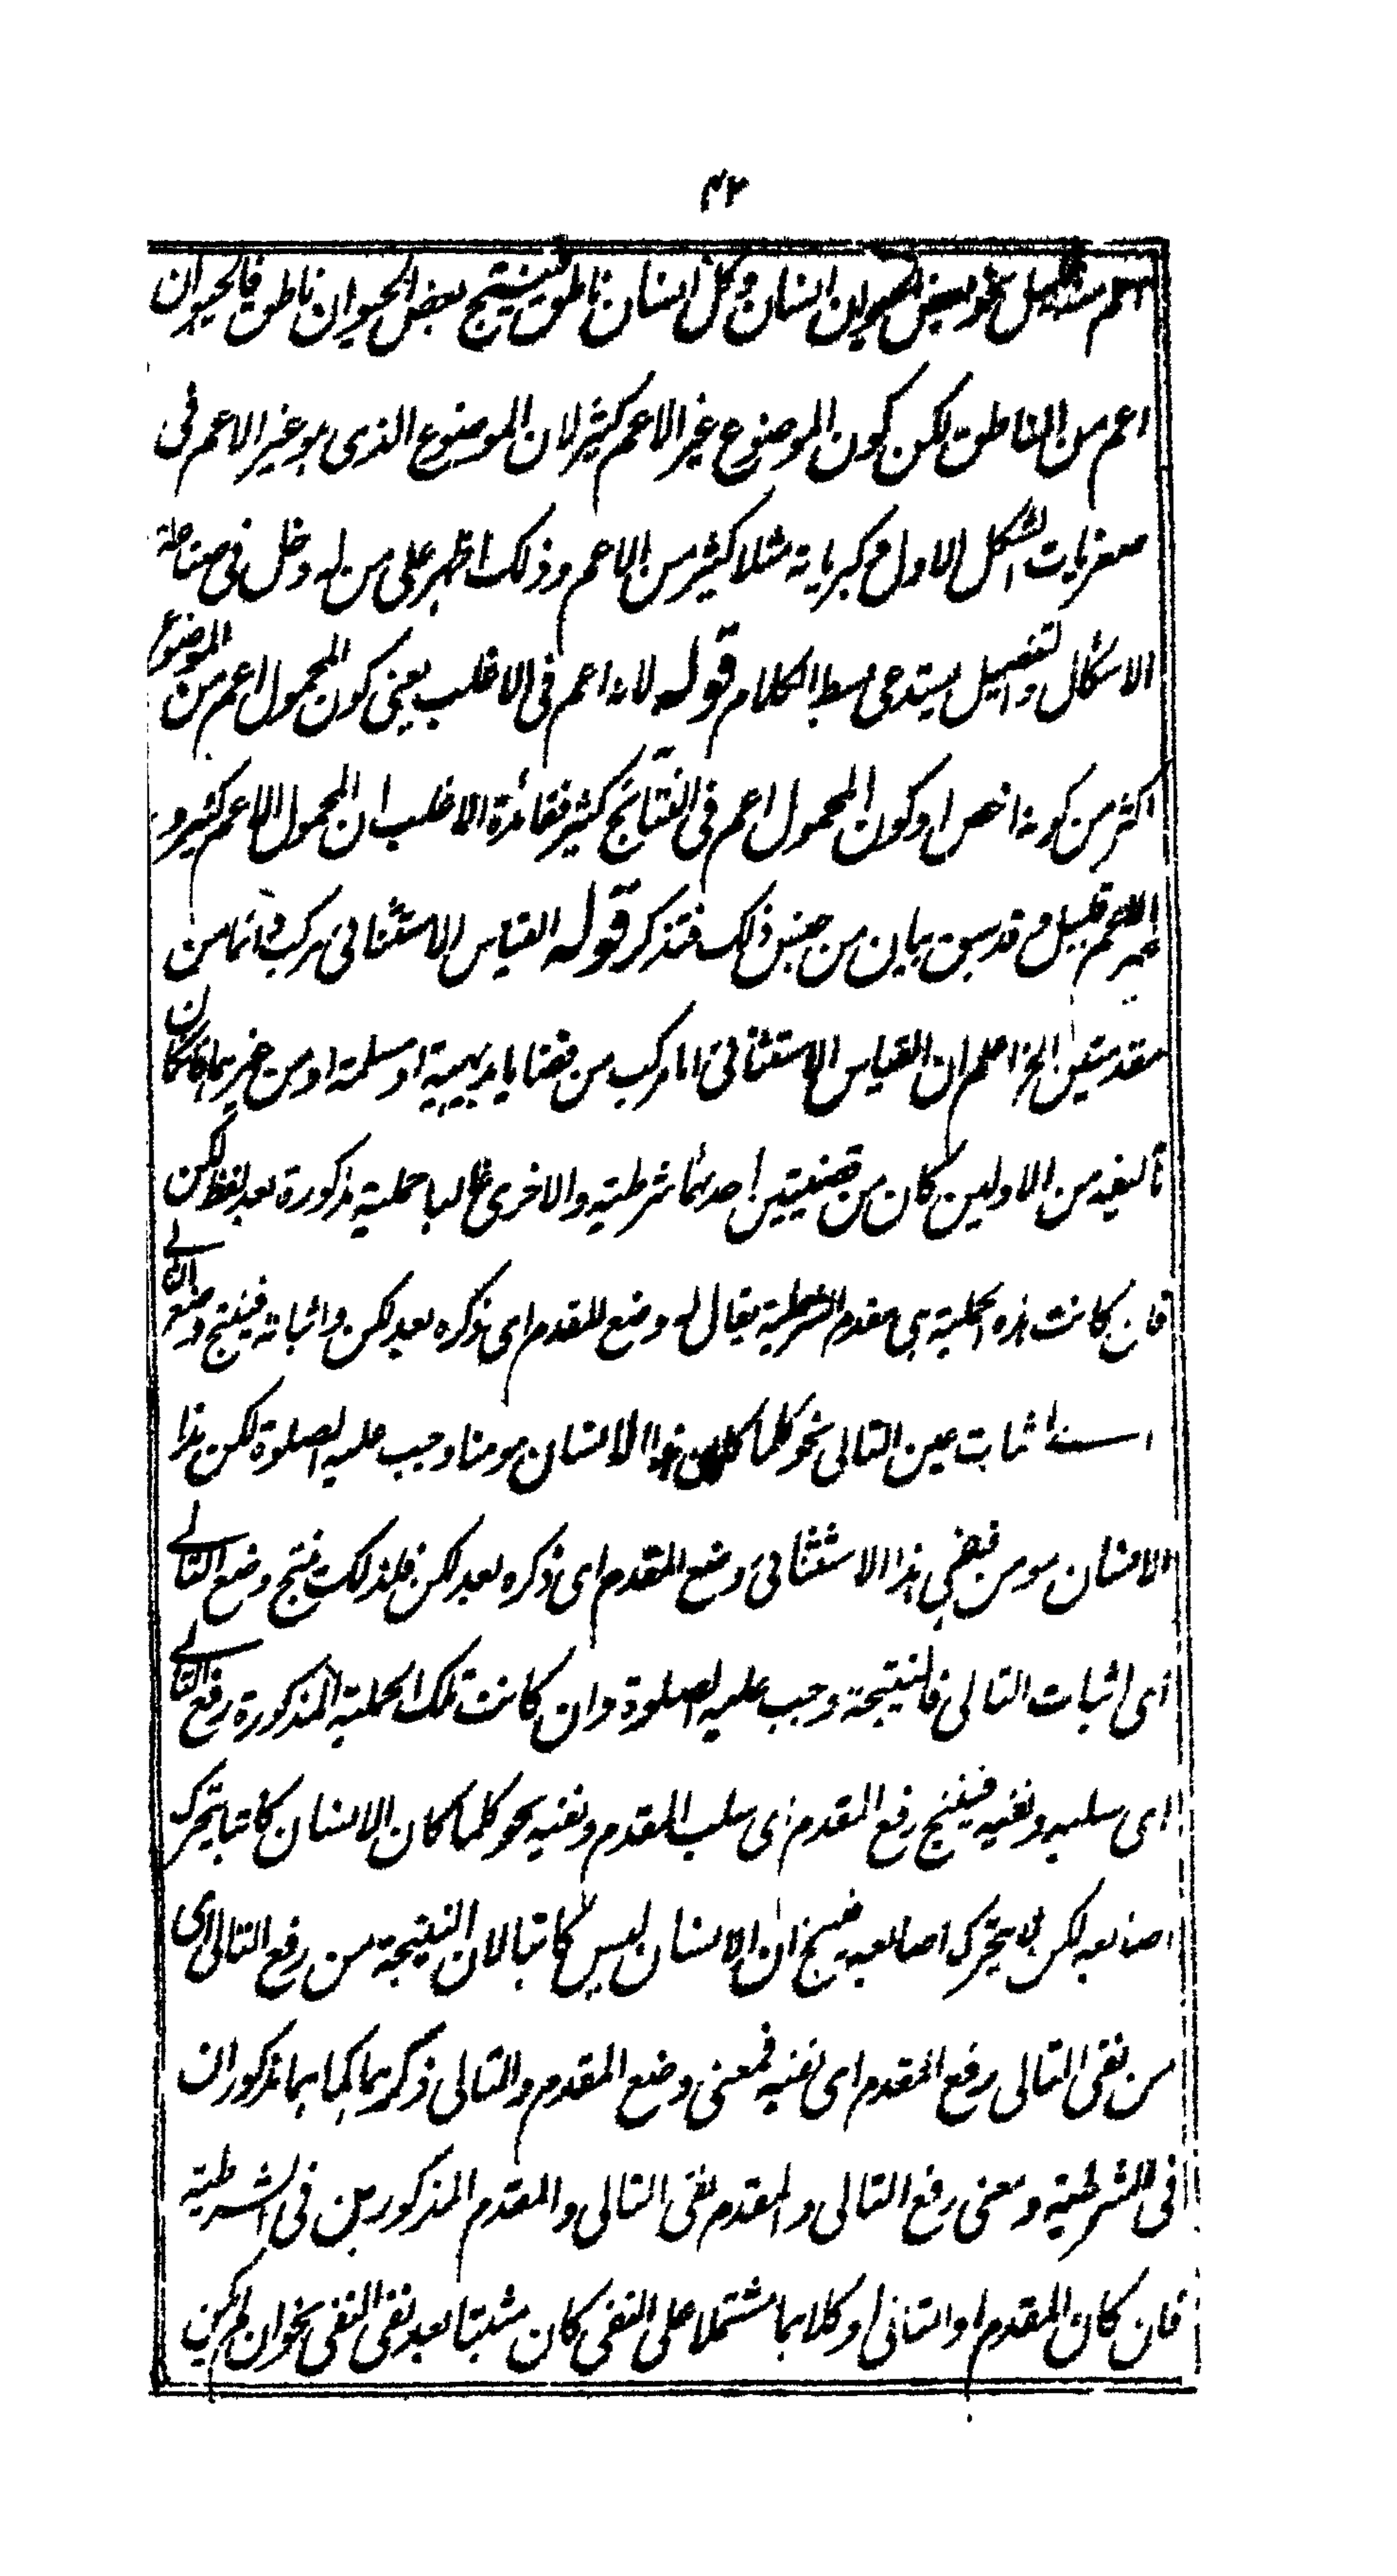 ۴۲
اعم قليل نحو بعض الحيوان انسان وكل انسان ناطق فينتج بعض الحيوان ناطق فالحيوان
اعم من الناطق لكن كون الموضوع غير الاعم كثير لان الموضوع الذى هو غير الاعم فى
صغريات الشكل الاول وكبرياته مثلا كثير من الاعم وذلك اظهر على من له دخل فى صناعة
الاشكال والتفصيل يستدعى بسط الكلام قوله لانه اعم فى الاغلب يعنى كون المحمول اعم من الموضوع
اكثر من كونه اخص او كون المحمول اعم فى النتائج كثير ففائدة الاغلب ان المحمول الاعم كثير و
غير الاعم قليل وقد سبق بيان من جنس ذلك فتذكر قوله القياس الاستثنائى مركب دائما من
مقدمتين الخ اعلم ان القياس الاستثنائى اما مركب من قضايا بديهية او مسلمة او من غيرهما فان كان
تاليفه من الاولين كان من قضيتين احدهما شرطية والاخرى غالبا حملية مذكورة بعد لفظ لكن
فان كانت هذه الحملية هى مقدم الشرطية يقال له وضع المقدم اى ذكره بعد لكن واثباته فينتج وضع التالى
اى اثبات عين التالى نحو كلما كان هذا الانسان مومنا وجب عليه الصلوة لكن هذا
الانسان مومن ففى هذا الاستثنائى وضع المقدم اى ذكره بعد لكن فلذلك ينتج وضع التالى
اى اثبات التالى فالنتيجة وجب عليه الصلوة وان كانت تلك الحملية المذكورة رفع التالى
اى سلبه ونفيه فينتج رفع المقدم اى سلب المقدم ونفيه نحو كلما كان الانسان كاتبا يتحرك
اصابعه لكن لا يتحرك اصابعه فينتج ان الانسان ليس كاتبا لان النتيجة من رفع التالى اى
من نفى التالى رفع المقدم اى نفيه فمعنى وضع المقدم والتالى ذكرهما كما هما مذكوران
فى الشرطية ومعنى رفع التالى والمقدم نفى التالى والمقدم المذكورين فى الشرطية
فان كان المقدم او التالى او كلاهما مشتملا على النفى كان مثبتا بعد نفى النفى نحو ان لم يكن